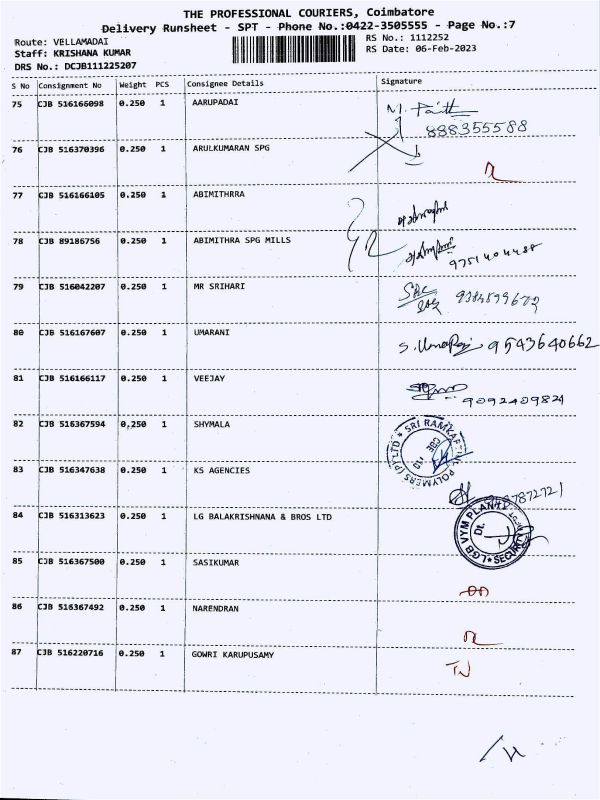 THE PROFESSIONAL COURIERS, Coimbatore
Delivery Runsheet - SPT - Phone No.:0422-3505555 - Page No.:7
Route: VELLAMADAI
RS No.: 1112252
Staff: KRISHANA KUMAR
RS Date: 06-Feb-2023
DRS No.: DCJB111225207
S No Consignment No Weight PCS Consignee Details Signature
75 CJB 516166098 0.250 1 AARUPADAI
888355588
76 CJB 516370396 0.250 1 ARULKUMARAN SPG
77 CJB 516166105 0.250 1 ABIMITHRRA
78 CJB 89186756 0.250 1 ABIMITHRA SPG MILLS
9751404488
79 CJB 516042207 0.250 1 MR SRIHARI
80 CJB 516167607 0.250 1 UMARANI
9543640662
81 CJB 516166117 0.250 1 VEEJAY
9092409824
82 CJB 516367594 0.250 1 SHYMALA
SRI RAM POLYMERS (P) LTD
CBE
83 CJB 516347638 0.250 1 KS AGENCIES
84 CJB 516313623 0.250 1 LG BALAKRISHNANA & BROS LTD
LGB VYM PLANT
Dt.
SECURITY
85 CJB 516367500 0.250 1 SASIKUMAR
86 CJB 516367492 0.250 1 NARENDRAN
87 CJB 516220716 0.250 1 GOWRI KARUPUSAMY